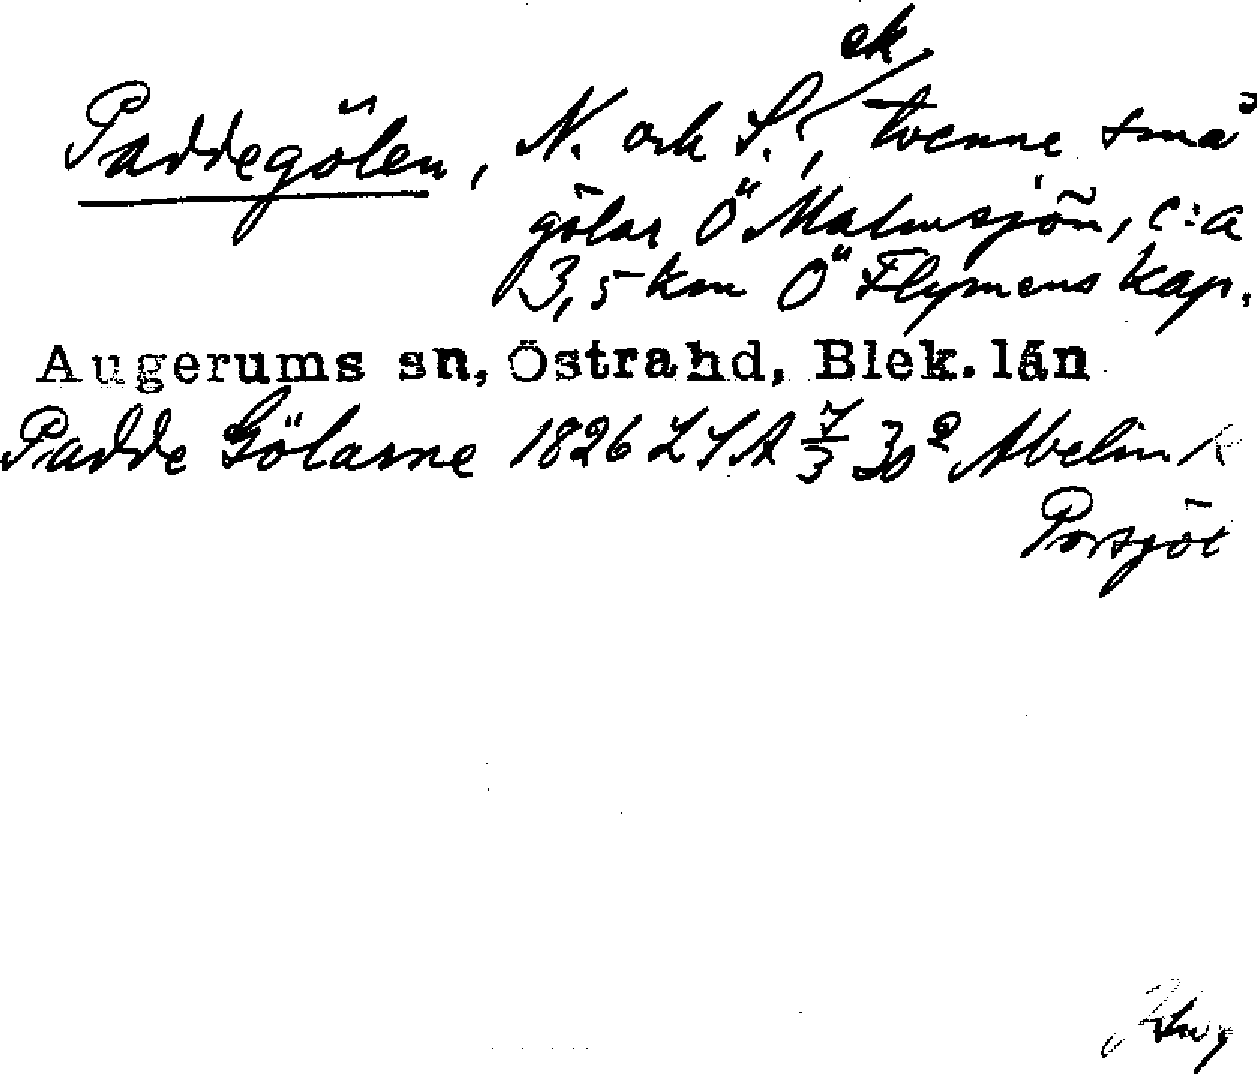 ek
Paddegölen, N. och S., tvenne små
gölar Ö Malmsjön, c:a
3,5 km Ö Flymens kap.
Augerums sn, Östra hd, Blek. län
Padde Gölarne 1826 LSA 7/3 30² Abelin K
Porsgöl